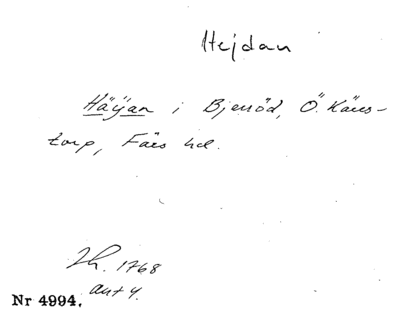 Hejdan
Häÿan i Bjersöd, Ö. Kärs-
torp, Färs hd.
Zh. 1768
ant 4.
Nr 4994.